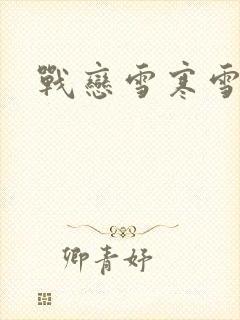 戰戀雪寒雪
卿青妤